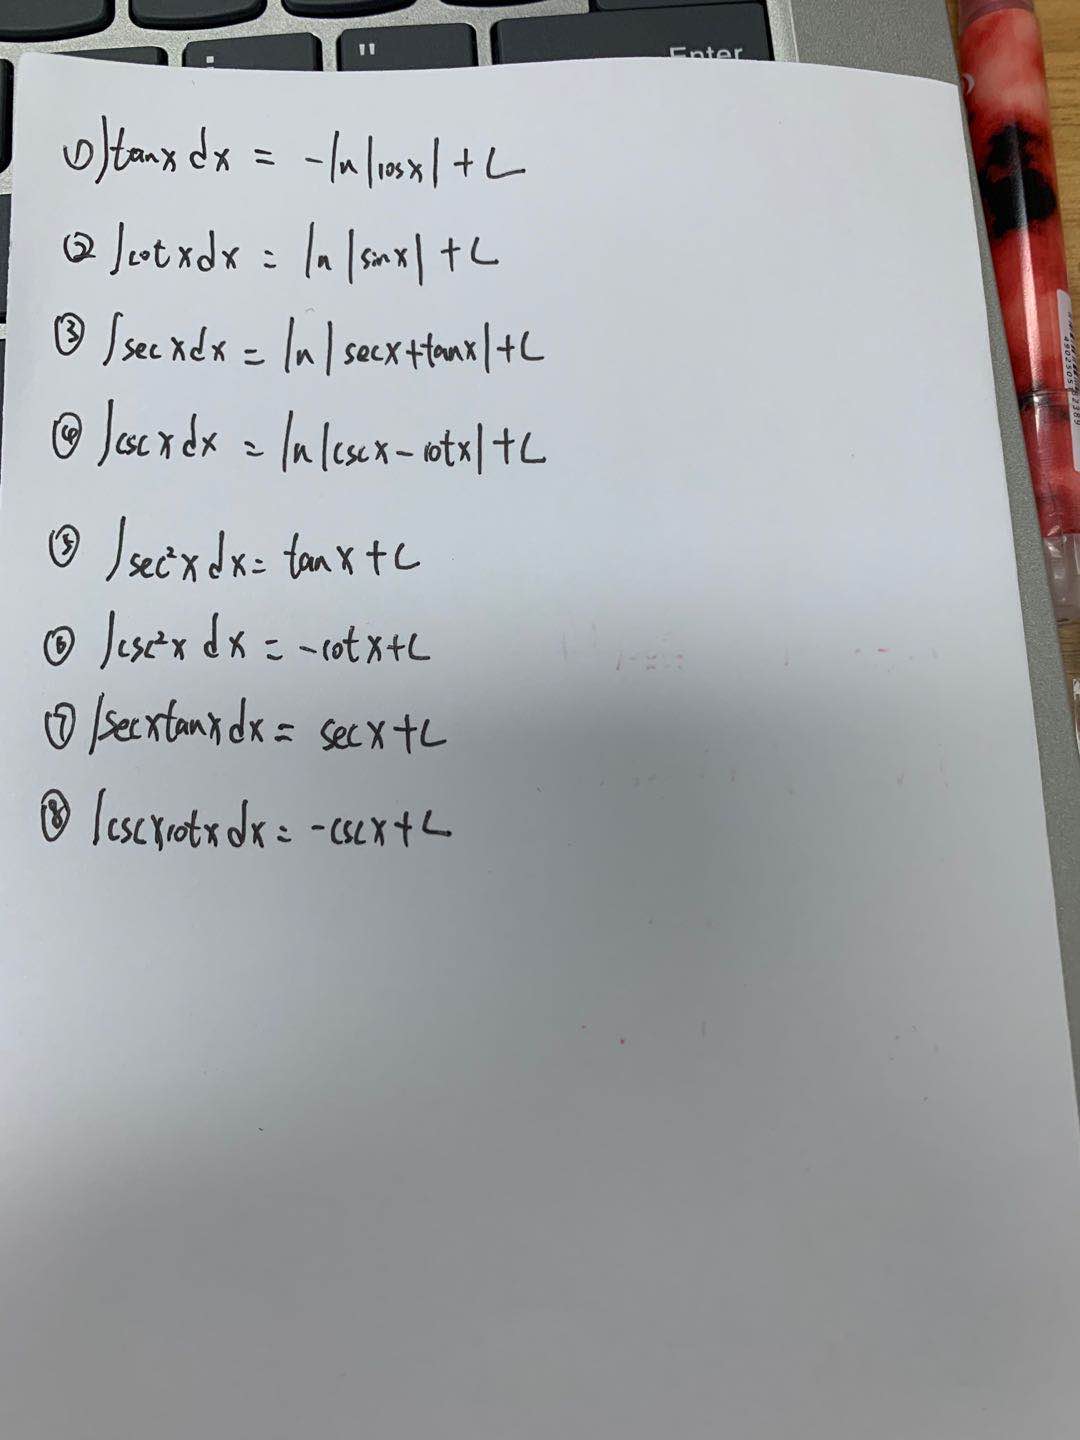 "
Enter
① ∫tanx dx = -ln|cosx| + C
② ∫cotxdx = ln|sinx| + C
③ ∫secxdx = ln|secx+tanx|+C
④ ∫cscxdx = ln|cscx-cotx|+C
⑤ ∫sec²xdx= tanx+C
⑥ ∫csc²x dx = -cotx+C
⑦ ∫secxtanxdx = secx+C
⑧ ∫cscxcotxdx = -cscx+C